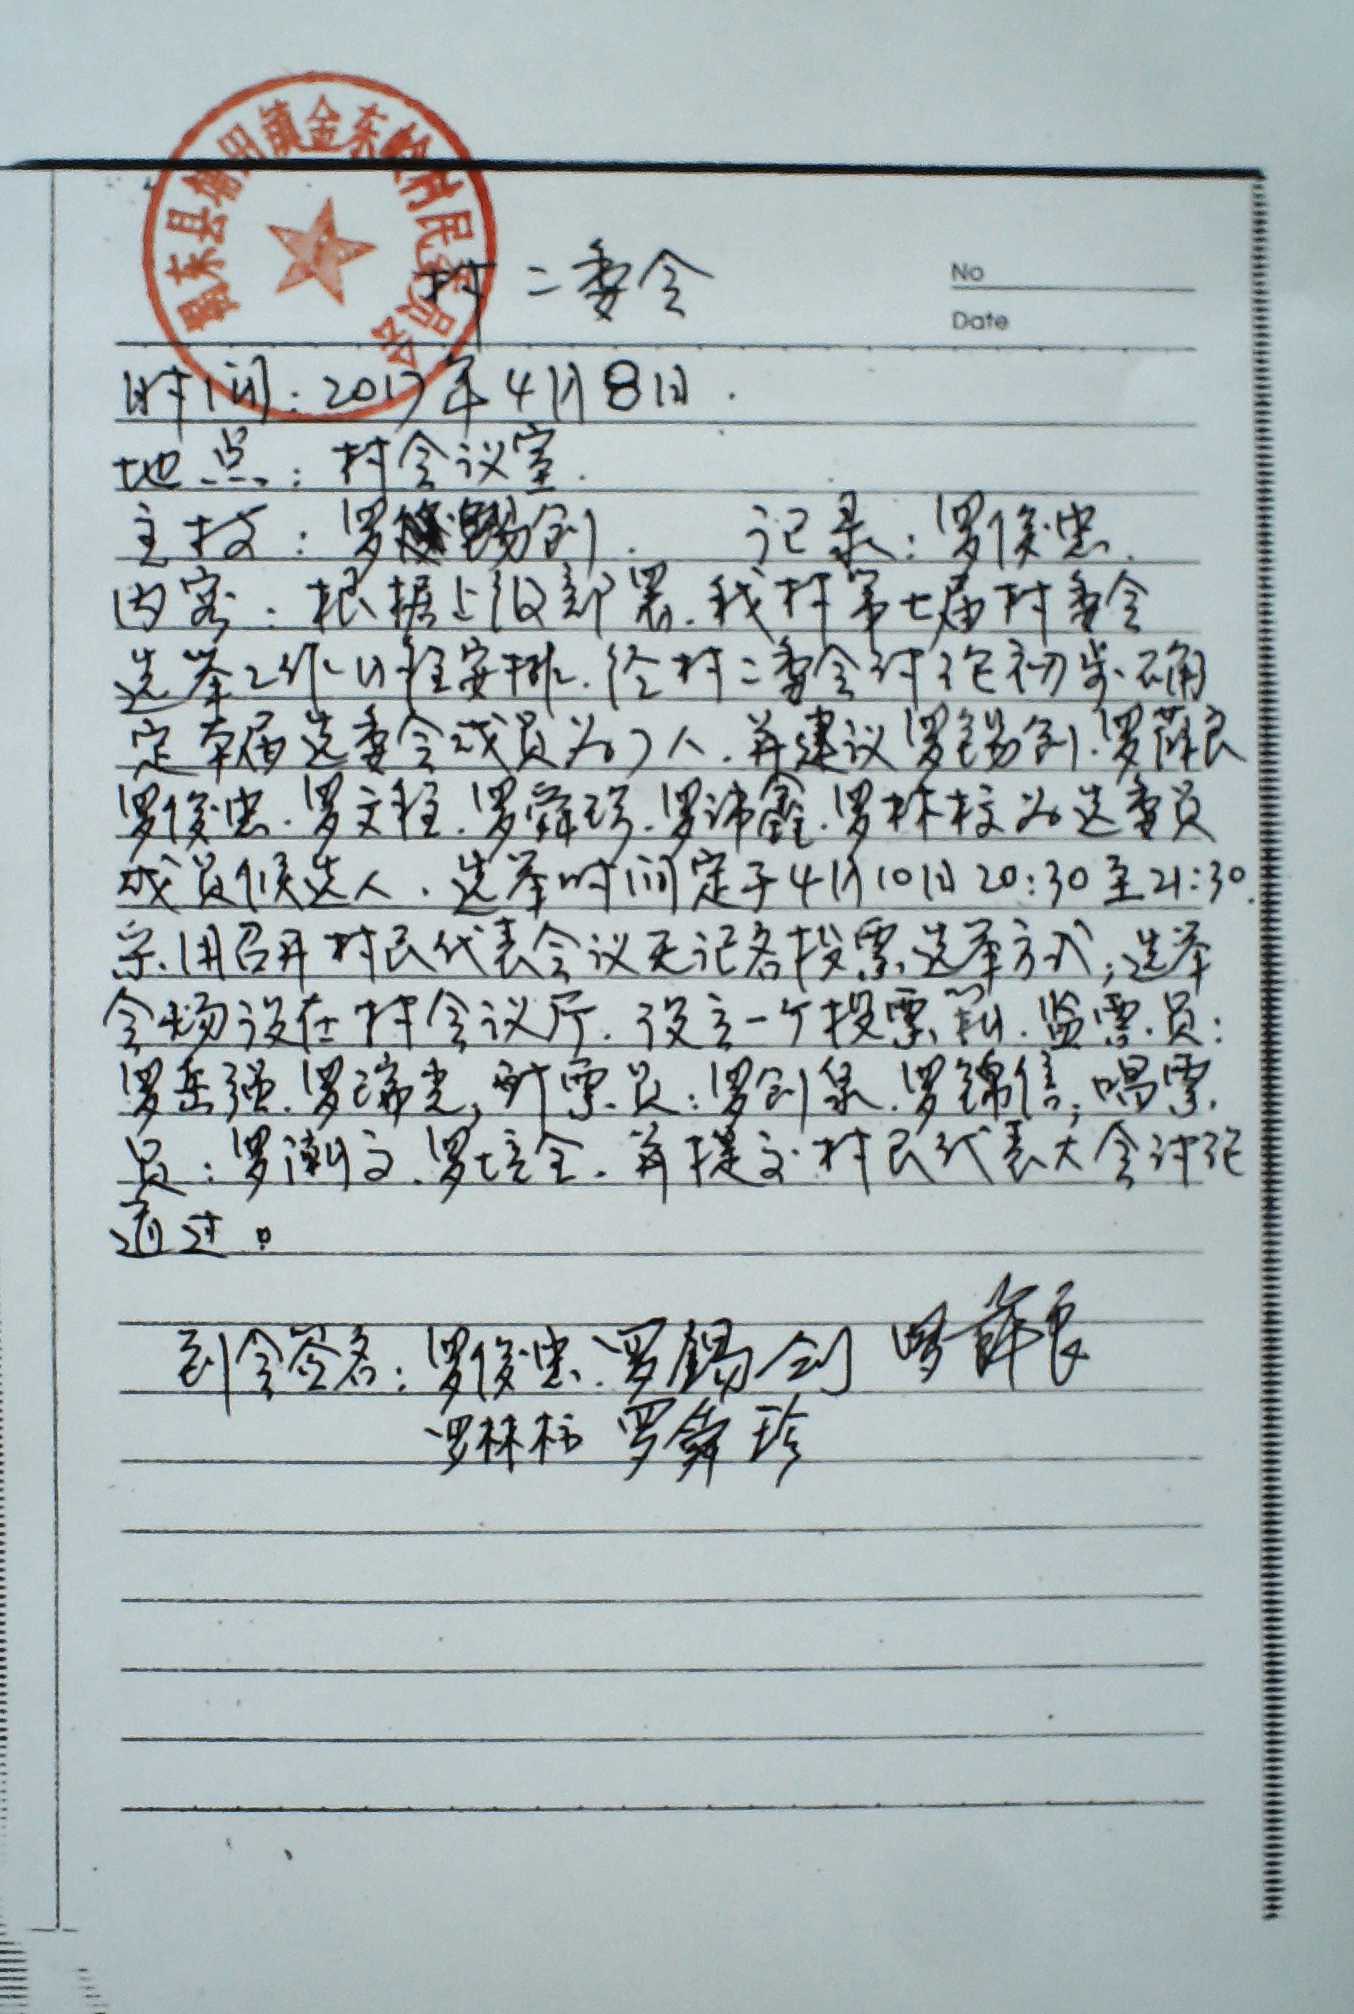 东县 镇金东 村民委员会
村二委会
No
Date
时间：2017年4月8日.
地点：村会议室.
主持：罗锡剑. 记录：罗俊忠.
内容：根据上级部署.我村第七届村委会
选举工作日程安排.经村二委会讨论初步确
定本届选委会成员为7人.并建议罗锡剑.罗萍良
罗俊忠.罗文程.罗舜珍.罗沛鑫.罗林标为选委员
成员候选人.选举时间定于4月10日20:30至21:30.
采用召开村民代表会议无记名投票选举方式；选举
会场设在村会议厅.设立一个投票箱.监票员：
罗岳强.罗瑞光；计票员：罗剑泉.罗锦信；唱票
员：罗潮文.罗培全.并提交村民代表大会讨论
通过。
到会签名：罗俊忠.罗锡剑 罗萍良
罗林标 罗舜珍